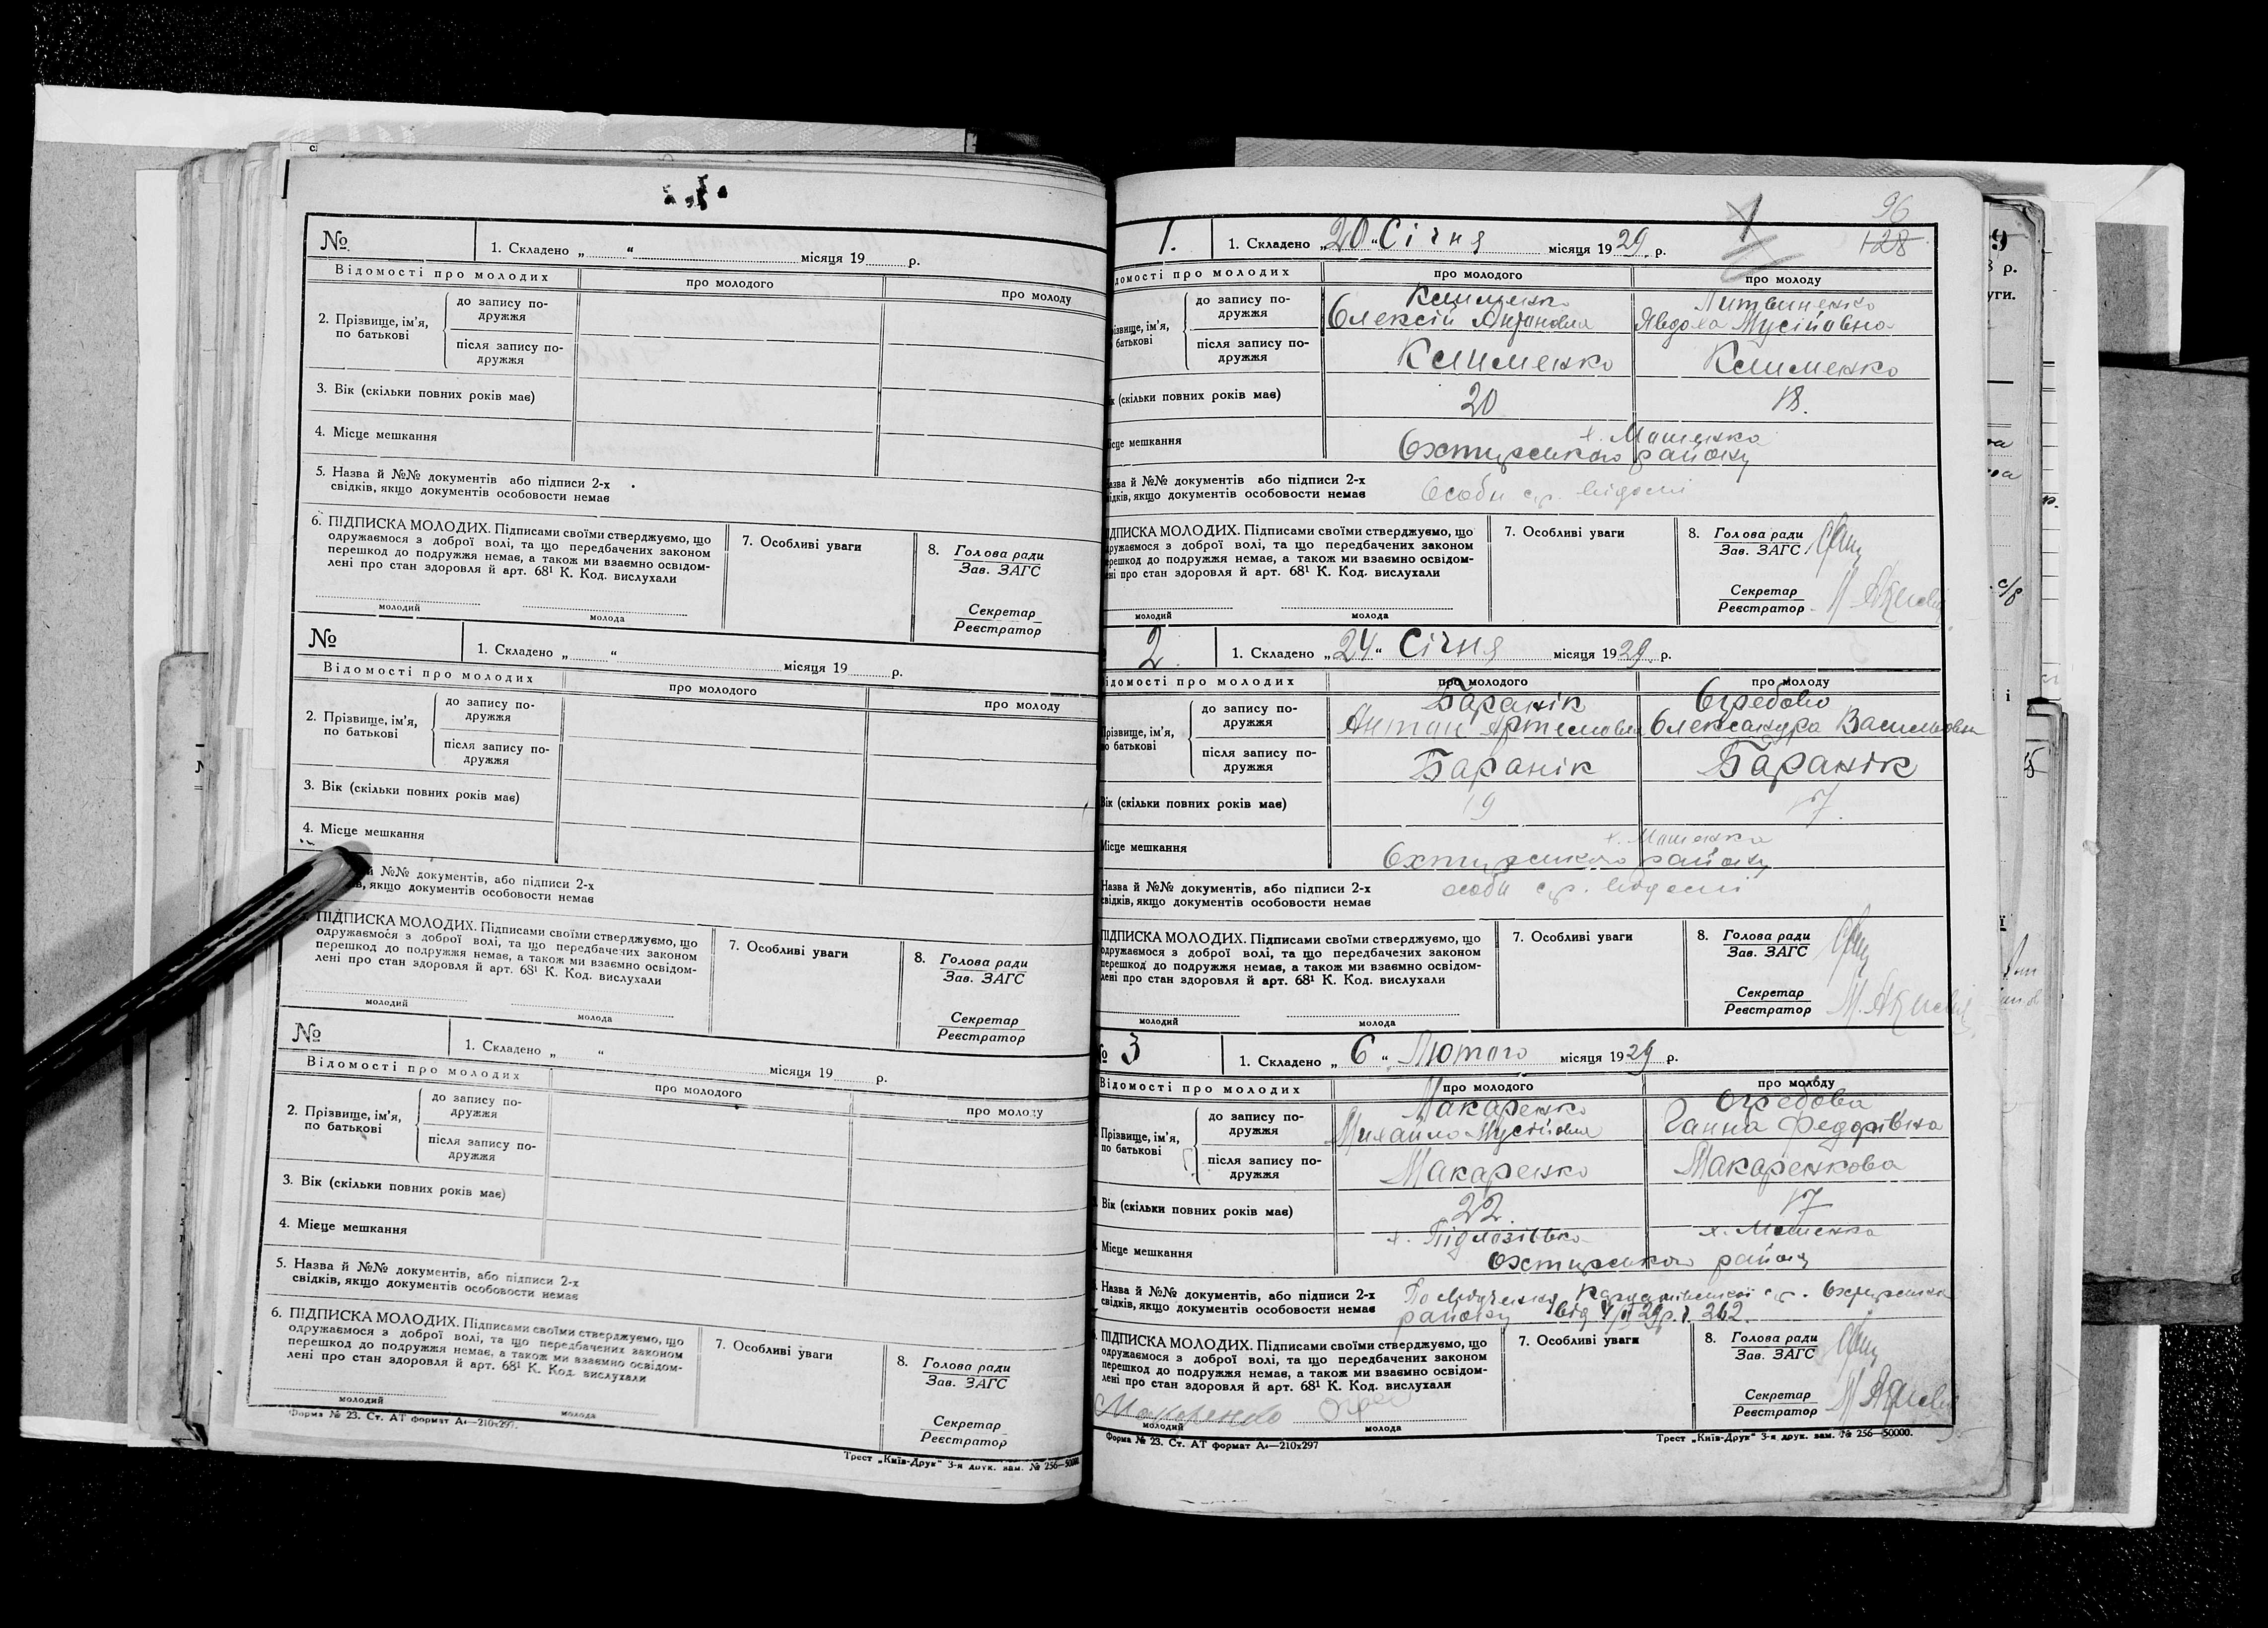 №
1. Складено „ “ місяця 19 р.
Відомості про молодих
про молодого
про молоду
2. Прізвище, ім'я,
по батькові
до запису по-
дружжя
після запису по-
дружжя
3. Вік (скільки повних років має)
4. Місце мешкання
5. Назва й №№ документів або підписи 2-х
свідків, якщо документів особовости немає
6. ПІДПИСКА МОЛОДИХ. Підписами своїми стверджуємо, що
одружаємося з доброї волі, та що передбачених законом
перешкод до подружжя немає, а також ми взаємно освідом-
лені про стан здоровля й арт. 68¹ К. Код. вислухали
молодий
молода
7. Особливі уваги
8. Голова ради
Зав. ЗАГС
Секретар
Реєстратор
№
1. Складено „ “ місяця 19 р.
Відомості про молодих
про молодого
про молоду
2. Прізвище, ім'я,
по батькові
до запису по-
дружжя
після запису по-
дружжя
3. Вік (скільки повних років має)
4. Місце мешкання
й №№ документів, або підписи 2-х
якщо документів особовости немає
ПІДПИСКА МОЛОДИХ. Підписами своїми стверджуємо, що
одружаємося з доброї волі, та що передбачених законом
перешкод до подружжя немає, а також ми взаємно освідом-
лені про стан здоровля й арт. 68¹ К. Код. вислухали
молодий
молода
7. Особливі уваги
8. Голова ради
Зав. ЗАГС
Секретар
Реєстратор
№
1. Складено „ “ місяця 19 р.
Відомості про молодих
про молодого
про молоду
2. Прізвище, ім'я,
по батькові
до запису по-
дружжя
після запису по-
дружжя
3. Вік (скільки повних років має)
4. Місце мешкання
5. Назва й №№ документів, або підписи 2-х
свідків, якщо документів особовости немає
6. ПІДПИСКА МОЛОДИХ. Підписами своїми стверджуємо, що
одружаємося з доброї волі, та що передбачених законом
перешкод до подружжя немає, а також ми взаємно освідом-
лені про стан здоровля й арт. 68¹ К. Код. вислухали
молодий
молода
7. Особливі уваги
8. Голова ради
Зав. ЗАГС
Секретар
Реєстратор
Форма № 23. Ст. АТ формат А₄—210х297.
Трест „Київ-Друк“ 3-я друк. зам. № 256—50000
96
128
1.
1. Складено „20“ Січня місяця 1929 р.
домості про молодих
про молодого
про молоду
ізвище, ім'я,
батькові
до запису по-
дружжя
Клименко
Олексій Антонович
Литвиненко
Явдоха Мусіївна
після запису по-
дружжя
Клименко
Клименко
к (скільки повних років має)
20
18.
ісце мешкання
х. Машенка
Охтирського району
азва й №№ документів або підписи 2-х
ідків, якщо документів особовости немає
Особи с.р. відомі
ІДПИСКА МОЛОДИХ. Підписами своїми стверджуємо, що
дружаємося з доброї волі, та що передбачених законом
ерешкод до подружжя немає, а також ми взаємно освідом-
ені про стан здоровля й арт. 68¹ К. Код. вислухали
молодий
молода
7. Особливі уваги
8. Голова ради
Зав. ЗАГС
Секретар
Реєстратор
2.
1. Складено „24“ Січня місяця 1929 р.
ідомості про молодих
про молодого
про молоду
різвище, ім'я,
о батькові
до запису по-
дружжя
Баранік
Антон Артемович
Огребово
Олександра Васильовна
після запису по-
дружжя
Баранік
Баранік
Вік (скільки повних років має)
19
17.
Місце мешкання
х. Машенка
Охтирського району
Назва й №№ документів, або підписи 2-х
свідків, якщо документів особовости немає
особи с.р. відомі
ПІДПИСКА МОЛОДИХ. Підписами своїми стверджуємо, що
одружаємося з доброї волі, та що передбачених законом
перешкод до подружжя немає, а також ми взаємно освідом-
лені про стан здоровля й арт. 68¹ К. Код. вислухали
молодий
молода
7. Особливі уваги
8. Голова ради
Зав. ЗАГС
Секретар
Реєстратор
№ 3
1. Складено „6“ Лютого місяця 1929 р.
Відомості про молодих
про молодого
про молоду
Прізвище, ім'я,
по батькові
до запису по-
дружжя
Макаренко
Михайло Мусійович
Огребова
Ганна Федорівна
після запису по-
дружжя
Макаренко
Макаренкова
Вік (скільки повних років має)
22.
17
Місце мешкання
х. Підлозіївка
х. Машенка
Охтирського району
Назва й №№ документів, або підписи 2-х
свідків, якщо документів особовости немає
По с.р. Охтирського
району від 4/II 29р. ч. 262.
ПІДПИСКА МОЛОДИХ. Підписами своїми стверджуємо, що
одружаємося з доброї волі, та що передбачених законом
перешкод до подружжя немає, а також ми взаємно освідом-
лені про стан здоровля й арт. 68¹ К. Код. вислухали
Макаренко
молодий
молода
7. Особливі уваги
8. Голова ради
Зав. ЗАГС
Секретар
Реєстратор
Форма № 23. Ст. АТ формат А₄—210х297
Трест „Київ-Друк“ 3-я друк. зам. № 256—50000.